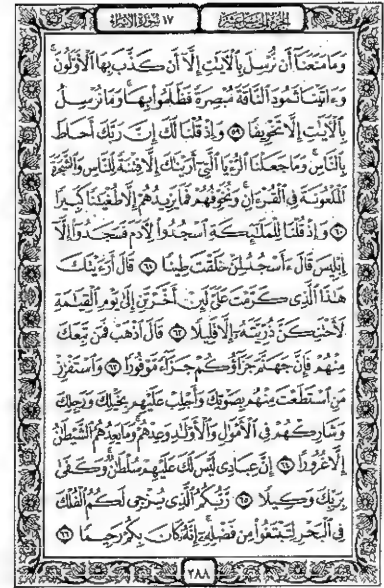 الجزء الخامس عشر
١٧ سورة الإسراء
وَمَا مَنَعَنَآ أَن نُّرْسِلَ بِٱلْءَايَٰتِ إِلَّآ أَن كَذَّبَ بِهَا ٱلْأَوَّلُونَ ۚ
وَءَاتَيْنَا ثَمُودَ ٱلنَّاقَةَ مُبْصِرَةً فَظَلَمُوا۟ بِهَا ۚ وَمَا نُرْسِلُ
بِٱلْءَايَٰتِ إِلَّا تَخْوِيفًا ٥٩ وَإِذْ قُلْنَا لَكَ إِنَّ رَبَّكَ أَحَاطَ
بِٱلنَّاسِ ۚ وَمَا جَعَلْنَا ٱلرُّءْيَا ٱلَّتِىٓ أَرَيْنَٰكَ إِلَّا فِتْنَةً لِّلنَّاسِ وَٱلشَّجَرَةَ
ٱلْمَلْعُونَةَ فِى ٱلْقُرْءَانِ ۚ وَنُخَوِّفُهُمْ فَمَا يَزِيدُهُمْ إِلَّا طُغْيَٰنًا كَبِيرًا
٦٠ وَإِذْ قُلْنَا لِلْمَلَٰٓئِكَةِ ٱسْجُدُوا۟ لِءَادَمَ فَسَجَدُوٓا۟ إِلَّآ
إِبْلِيسَ قَالَ ءَأَسْجُدُ لِمَنْ خَلَقْتَ طِينًا ٦١ قَالَ أَرَءَيْتَكَ
هَٰذَا ٱلَّذِى كَرَّمْتَ عَلَىَّ لَئِنْ أَخَّرْتَنِ إِلَىٰ يَوْمِ ٱلْقِيَٰمَةِ
لَأَحْتَنِكَنَّ ذُرِّيَّتَهُۥٓ إِلَّا قَلِيلًا ٦٢ قَالَ ٱذْهَبْ فَمَن تَبِعَكَ
مِنْهُمْ فَإِنَّ جَهَنَّمَ جَزَآؤُكُمْ جَزَآءً مَّوْفُورًا ٦٣ وَٱسْتَفْزِزْ
مَنِ ٱسْتَطَعْتَ مِنْهُم بِصَوْتِكَ وَأَجْلِبْ عَلَيْهِم بِخَيْلِكَ وَرَجِلِكَ
وَشَارِكْهُمْ فِى ٱلْأَمْوَٰلِ وَٱلْأَوْلَٰدِ وَعِدْهُمْ ۚ وَمَا يَعِدُهُمُ ٱلشَّيْطَٰنُ
إِلَّا غُرُورًا ٦٤ إِنَّ عِبَادِى لَيْسَ لَكَ عَلَيْهِمْ سُلْطَٰنٌ ۚ وَكَفَىٰ
بِرَبِّكَ وَكِيلًا ٦٥ رَّبُّكُمُ ٱلَّذِى يُزْجِى لَكُمُ ٱلْفُلْكَ
فِى ٱلْبَحْرِ لِتَبْتَغُوا۟ مِن فَضْلِهِۦٓ ۚ إِنَّهُۥ كَانَ بِكُمْ رَحِيمًا ٦٦
٢٨٨